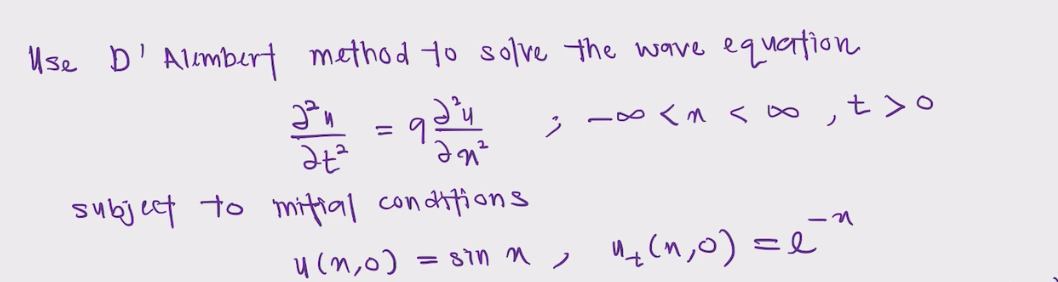 Use D' Alembert method to solve the wave equation
∂²u/∂t² = 9 ∂²u/∂x² ; -∞ < x < ∞ , t > 0
subject to initial conditions
u(x,0) = sin x , u_t(x,0) = e^{-x}